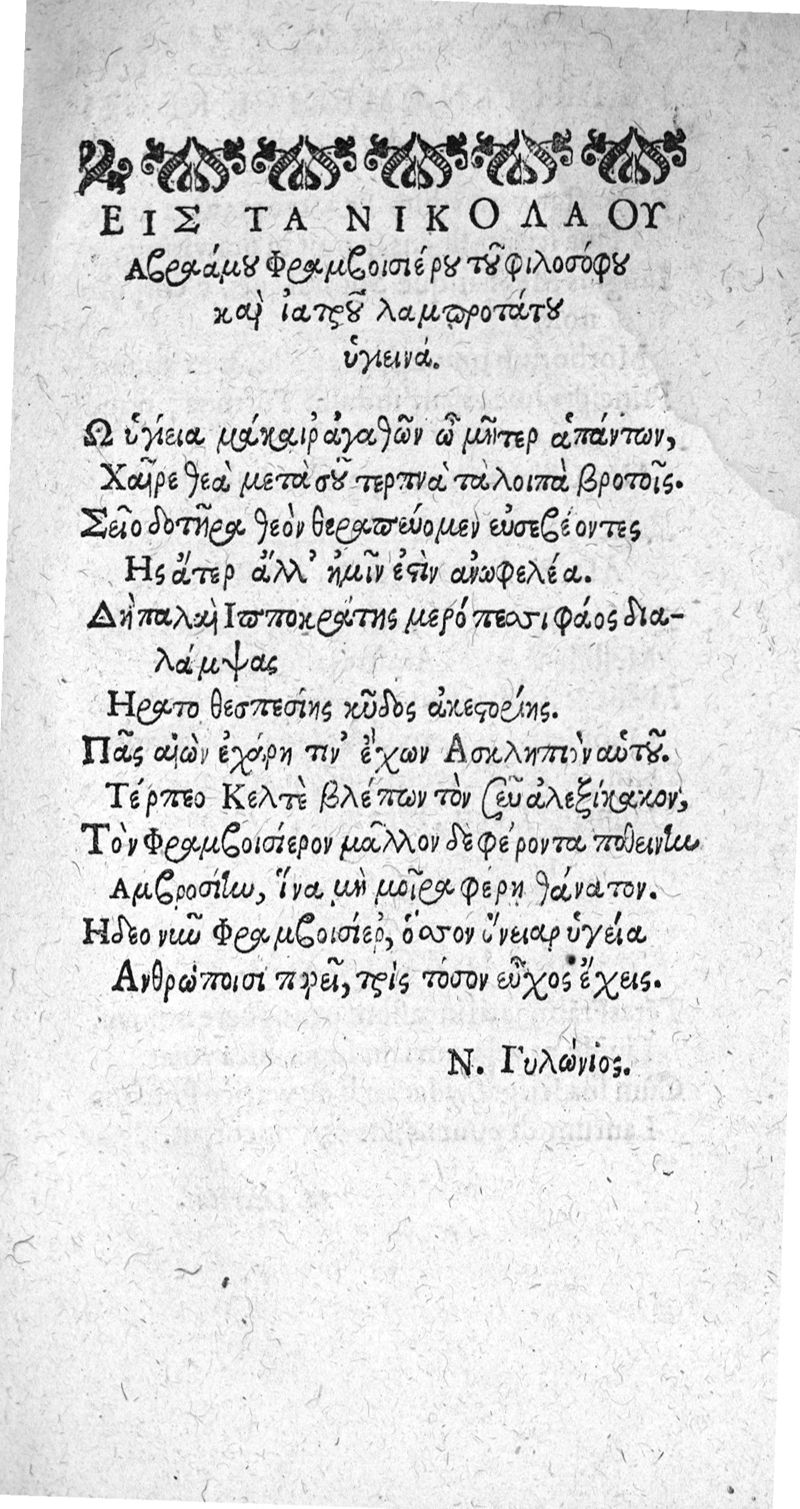 ΕΙΣ ΤΑ ΝΙΚΟΛΑΟΥ
Αβραάμου Φραμβοισιέρου τοῦ φιλοσόφου
καὶ ἰατροῦ λαμπροτάτου
ὑγιεινά.
Ω ὑγίεια μάκαιρ ἀγαθῶν ὦ μῆτερ ἁπάντων,
Χαῖρε θεὰ μετὰ σοῦ τερπνὰ τὰ λοιπὰ βροτοῖς.
Σεῖο δοτῆρα θεὸν θεραπεύομεν εὐσεβέοντες
Ης ἄτερ ἄλλ' ἡμῖν ἐστὶν ἀνωφελέα.
Δὴ παλαὴ Ιπποκράτης μερόπεσσι φάος δια-
λάμψας
Ηρατο θεσπεσίης κῦδος ἀκεστορίης.
Πᾶς αἰὼν ἐχάρη τιν' ἔχων Ασκληπιὸν αὑτοῦ.
Τέρπεο Κελτὲ βλέπων τὸν σεῦ ἀλεξίκακον,
Τὸν Φραμβοισίερον μᾶλλον δὲ φέροντα ποθεινὴν
Αμβροσίην, ἵνα μὴ μοῖρα φέρῃ θάνατον.
Ηδεο νῶ Φραμβοισίερ, ὅσσον ὄνειαρ ὑγεία
Ανθρώποισι πρεῖ, τρὶς τόσον εὖχος ἔχεις.
Ν. Γυλώνιος.